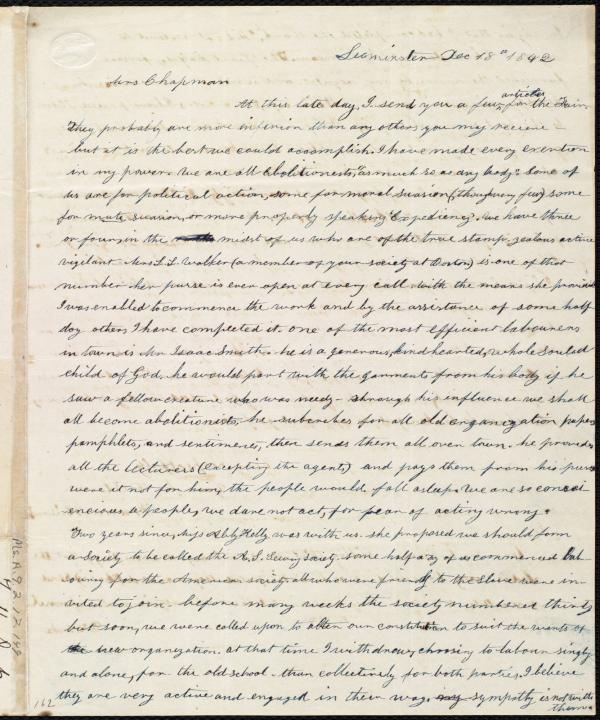 Leominster Dec 18th 1842
Mrs Chapman
At this late day, I send you a few articles for the Fair,
They probably are more inferior than any others you may receive –
but it is the best we could accomplish. I have made every exertion
in my power. We are all abolitionists, "as much so as any body." Some of
us are for political action, some for moral suasion, (though very few) some
for mute suasion, or more properly speaking "Expediency". We have three
or four, in the midst of us who are of the true stamp, zealous active
vigilant. Mrs L L Walker (a member of your society at Boston) is one of that
number. her purse is ever open at every call. with the means she provided
I was enabled to commence the work and by the assistance of some half
doz others I have completed it. one of the most efficient labourers
in town is Mr Isaac Smith. he is a generous, kind hearted, whole souled
child of God. he would part with the garments from his body if he
saw a fellow creature who was needy – through his influence we shall
all become abolitionists. he subscribes for all old organization papers
pamphlets, and sentiments, then sends them all over town. he provides
all the lecturers (excepting the agents) and pays them from his purse
were it not for him, the people would fall asleep. We are so consci
encious a people, we dare not act, for fear of acting wrong.
Two years since, Miss Abby Kelly was with us. she proposed we should form
a Society to be called the A. S. Sewing Society. some half doz of us commenced lab
ouring for the American society. all who were friendly to the Slave were in-
vited to join. before many weeks the society numbered thirty
but soon, we were called upon to alter our constitution to suit the wants of
new organization. at that time I withdrew, choosing to labour singly
and alone, for the old school – than collectively for both parties. I believe
they are very active and engaged in their way. my sympathy is not with
them.
162